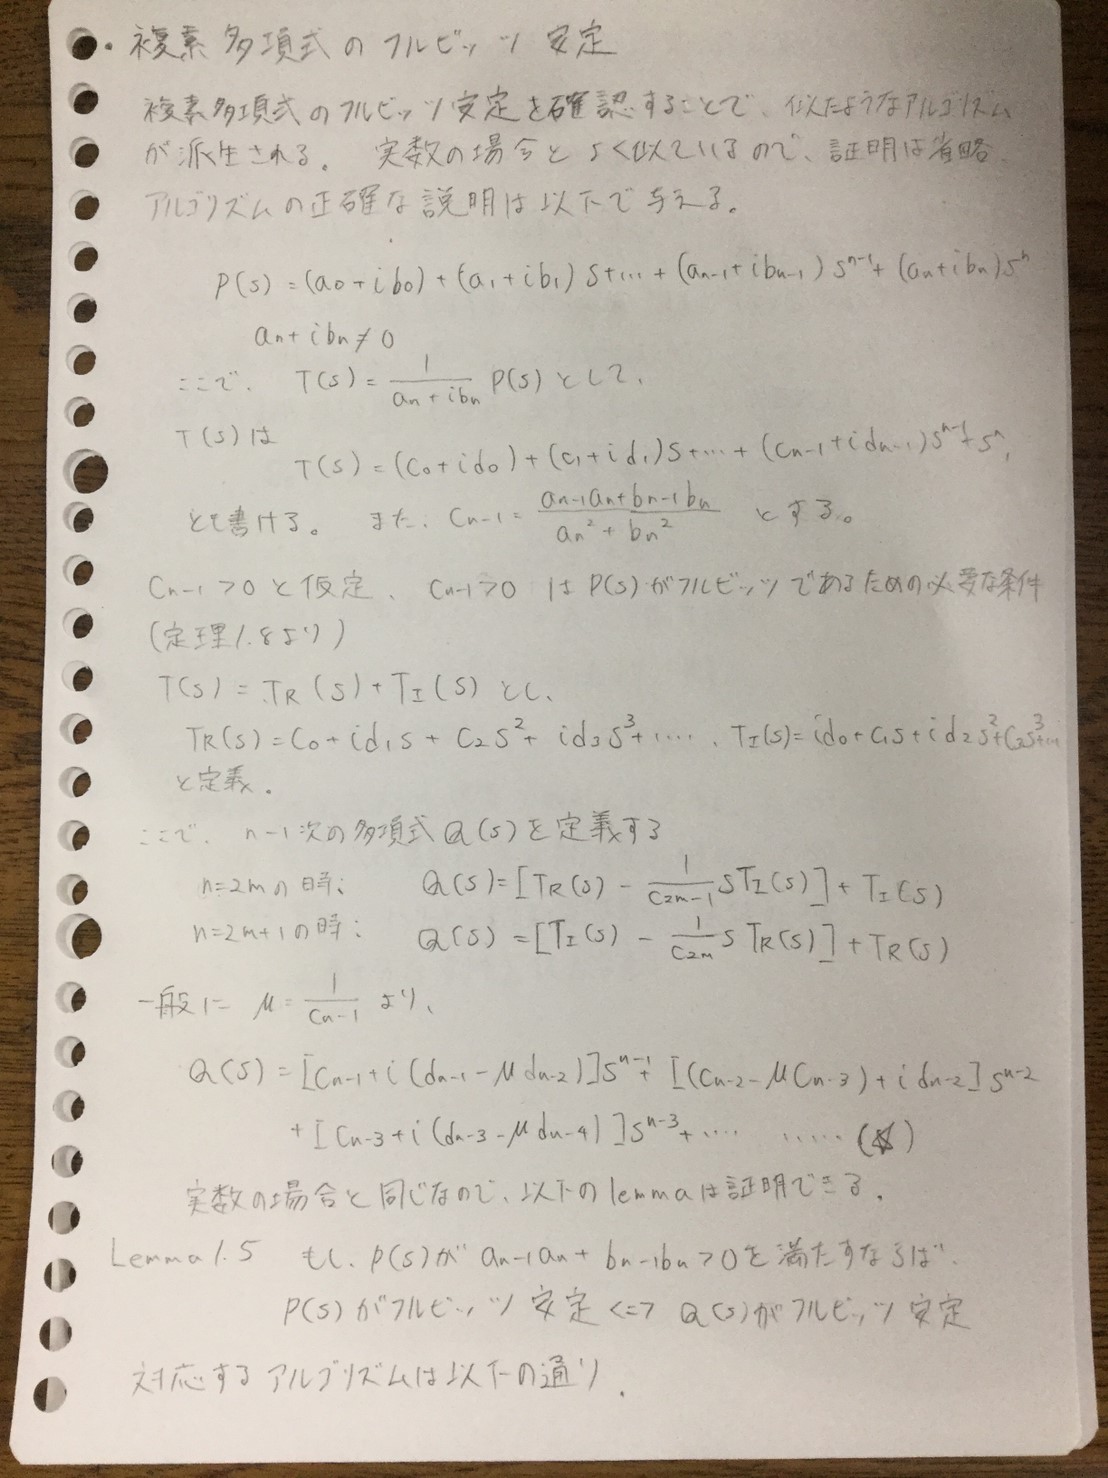 ・複素多項式のフルビッツ安定
複素多項式のフルビッツ安定を確認することで、似たようなアルゴリズム
が派生される。 実数の場合とよく似ているので、証明は省略、
アルゴリズムの正確な説明は以下で与える。
P(s) = (a0+ib0) + (a1+ib1)s+… + (an-1+ibn-1)s^n-1 + (an+ibn)s^n
an+ibn≠0
ここで、 T(s) = 1/(an+ibn) P(s) として、
T(s)は
T(s) = (c0+id0) + (c1+id1)s+… + (cn-1+idn-1)s^n-1+s^n,
とも書ける。 また、 Cn-1 = (an-1an+bn-1bn)/(an²+bn²) とする。
Cn-1>0と仮定、 Cn-1>0 は P(s)がフルビッツであるための必要な条件
(定理1.8より)
T(s) = TR(s)+TI(s) とし、
TR(s) = C0+id1s + C2s²+ id3s³+…. , TI(s)=id0+C1s+id2s²+C3s³+…
と定義.
ここで、 n-1次の多項式Q(s)を定義する
n=2mの時; Q(s)=[TR(s) - 1/C2m-1 sTI(s)] + TI(s)
n=2m+1の時; Q(s) =[TI(s) - 1/C2m s TR(s)] + TR(s)
一般に μ = 1/Cn-1 より、
Q(s) = [Cn-1+i(dn-1-μdn-2)]s^n-1+ [(Cn-2-μCn-3)+idn-2]s^n-2
+[Cn-3+i(dn-3-μdn-4)]s^n-3+…. ….. (☆)
実数の場合と同じなので、以下のlemmaは証明できる.
Lemma 1.5 もし、P(s)が an-1an+bn-1bn>0を満たすならば、
P(s)がフルビッツ安定 <=> Q(s)がフルビッツ安定
対応するアルゴリズムは以下の通り.